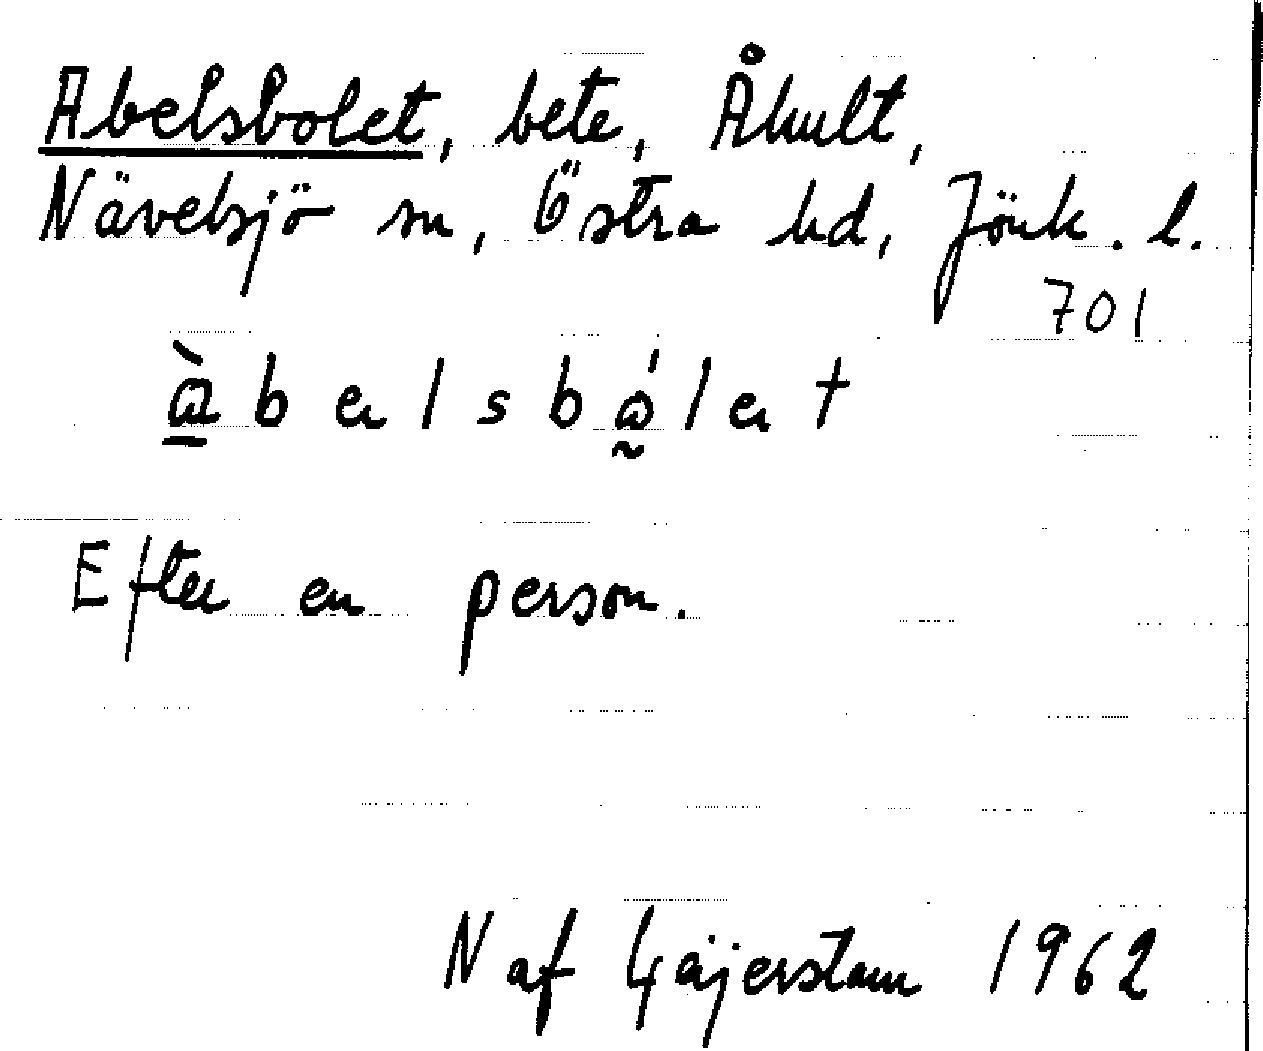 Abelsbolet, bete, Åhult,
Nävelsjö sn, Östra hd, Jönk. l.
701
Efter en person.
N af Gäjerstam 1962